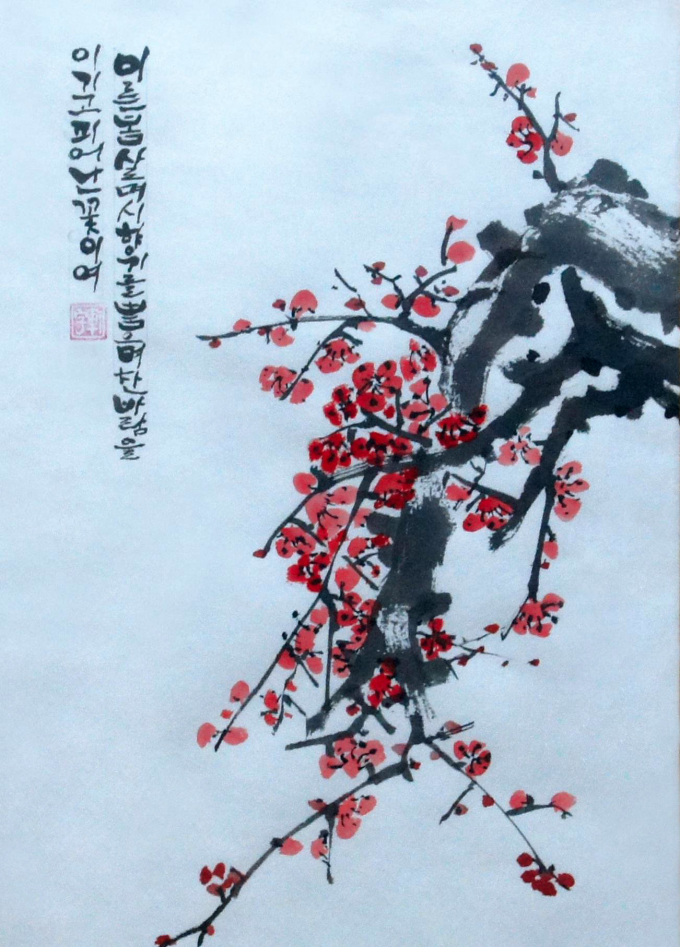 이른봄살며시향기를뿜으며찬바람을
이기고피어난꽃이여